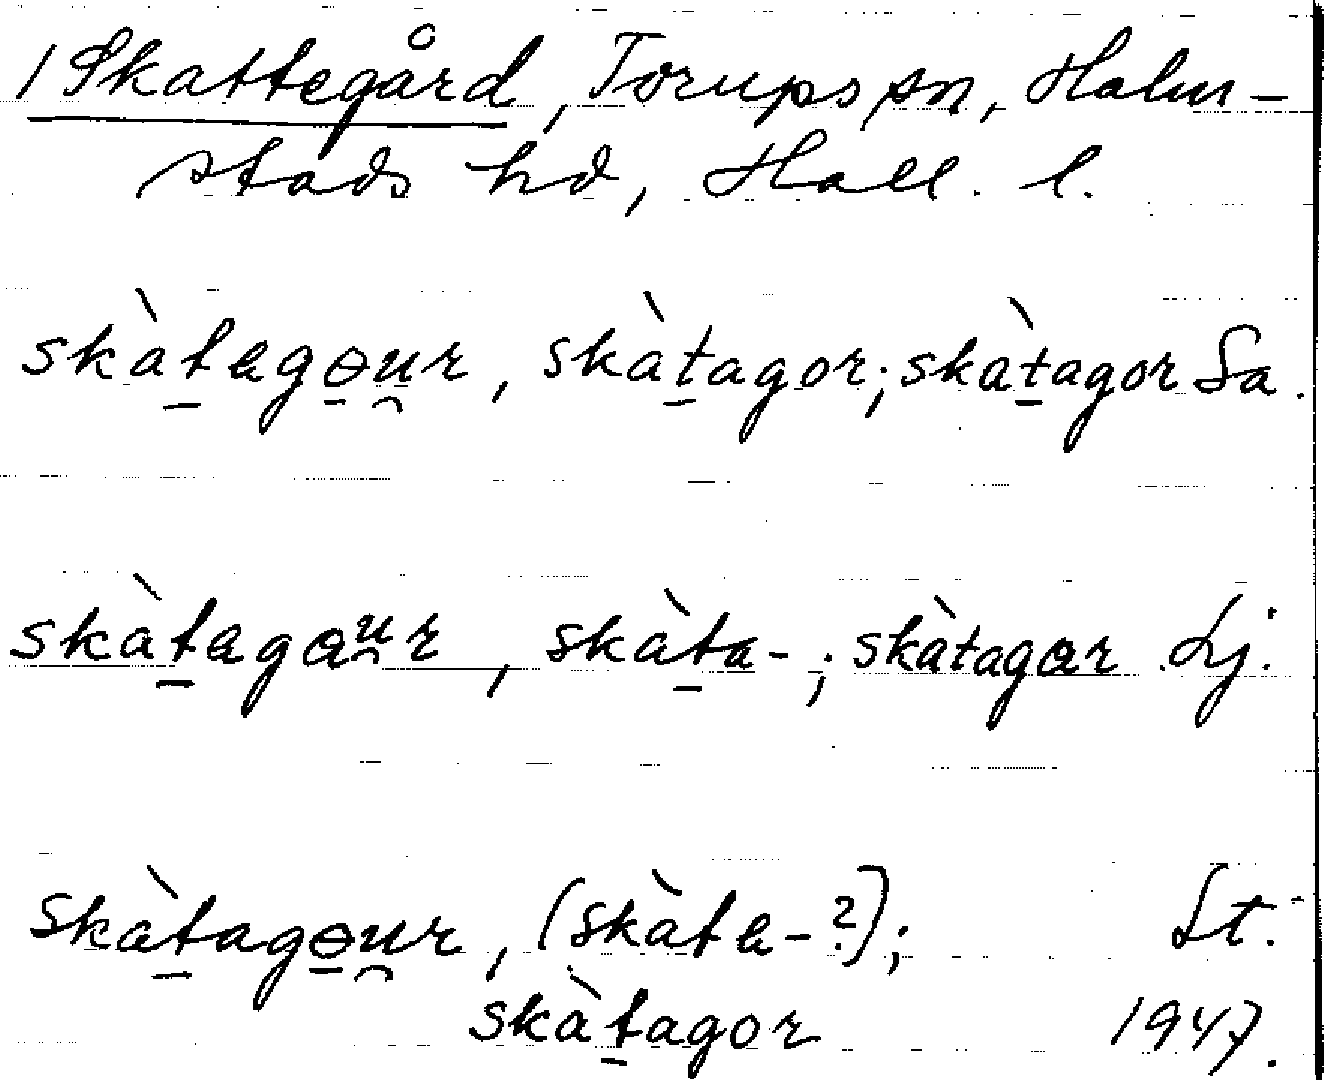 1 Skattegård, Torups sn, Halm-
stads hd, Hall. l.
skàt̠egɵ̠u̯r, skàt̠agor; skàt̠agor Sa.
skàt̠agɑu̯r, skàt̠a-; skàtagɑr Lj.
skàt̠agɵ̠u̯r, (skàte-?); St.
skàt̠agor 1947.